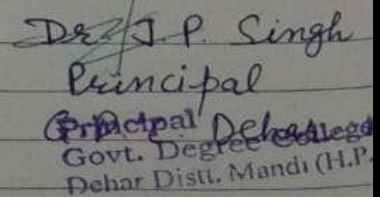 Dr. J. P. Singh
Principal
Principal Dehar
Govt. Degree College
Dehar Distt. Mandi (H.P.